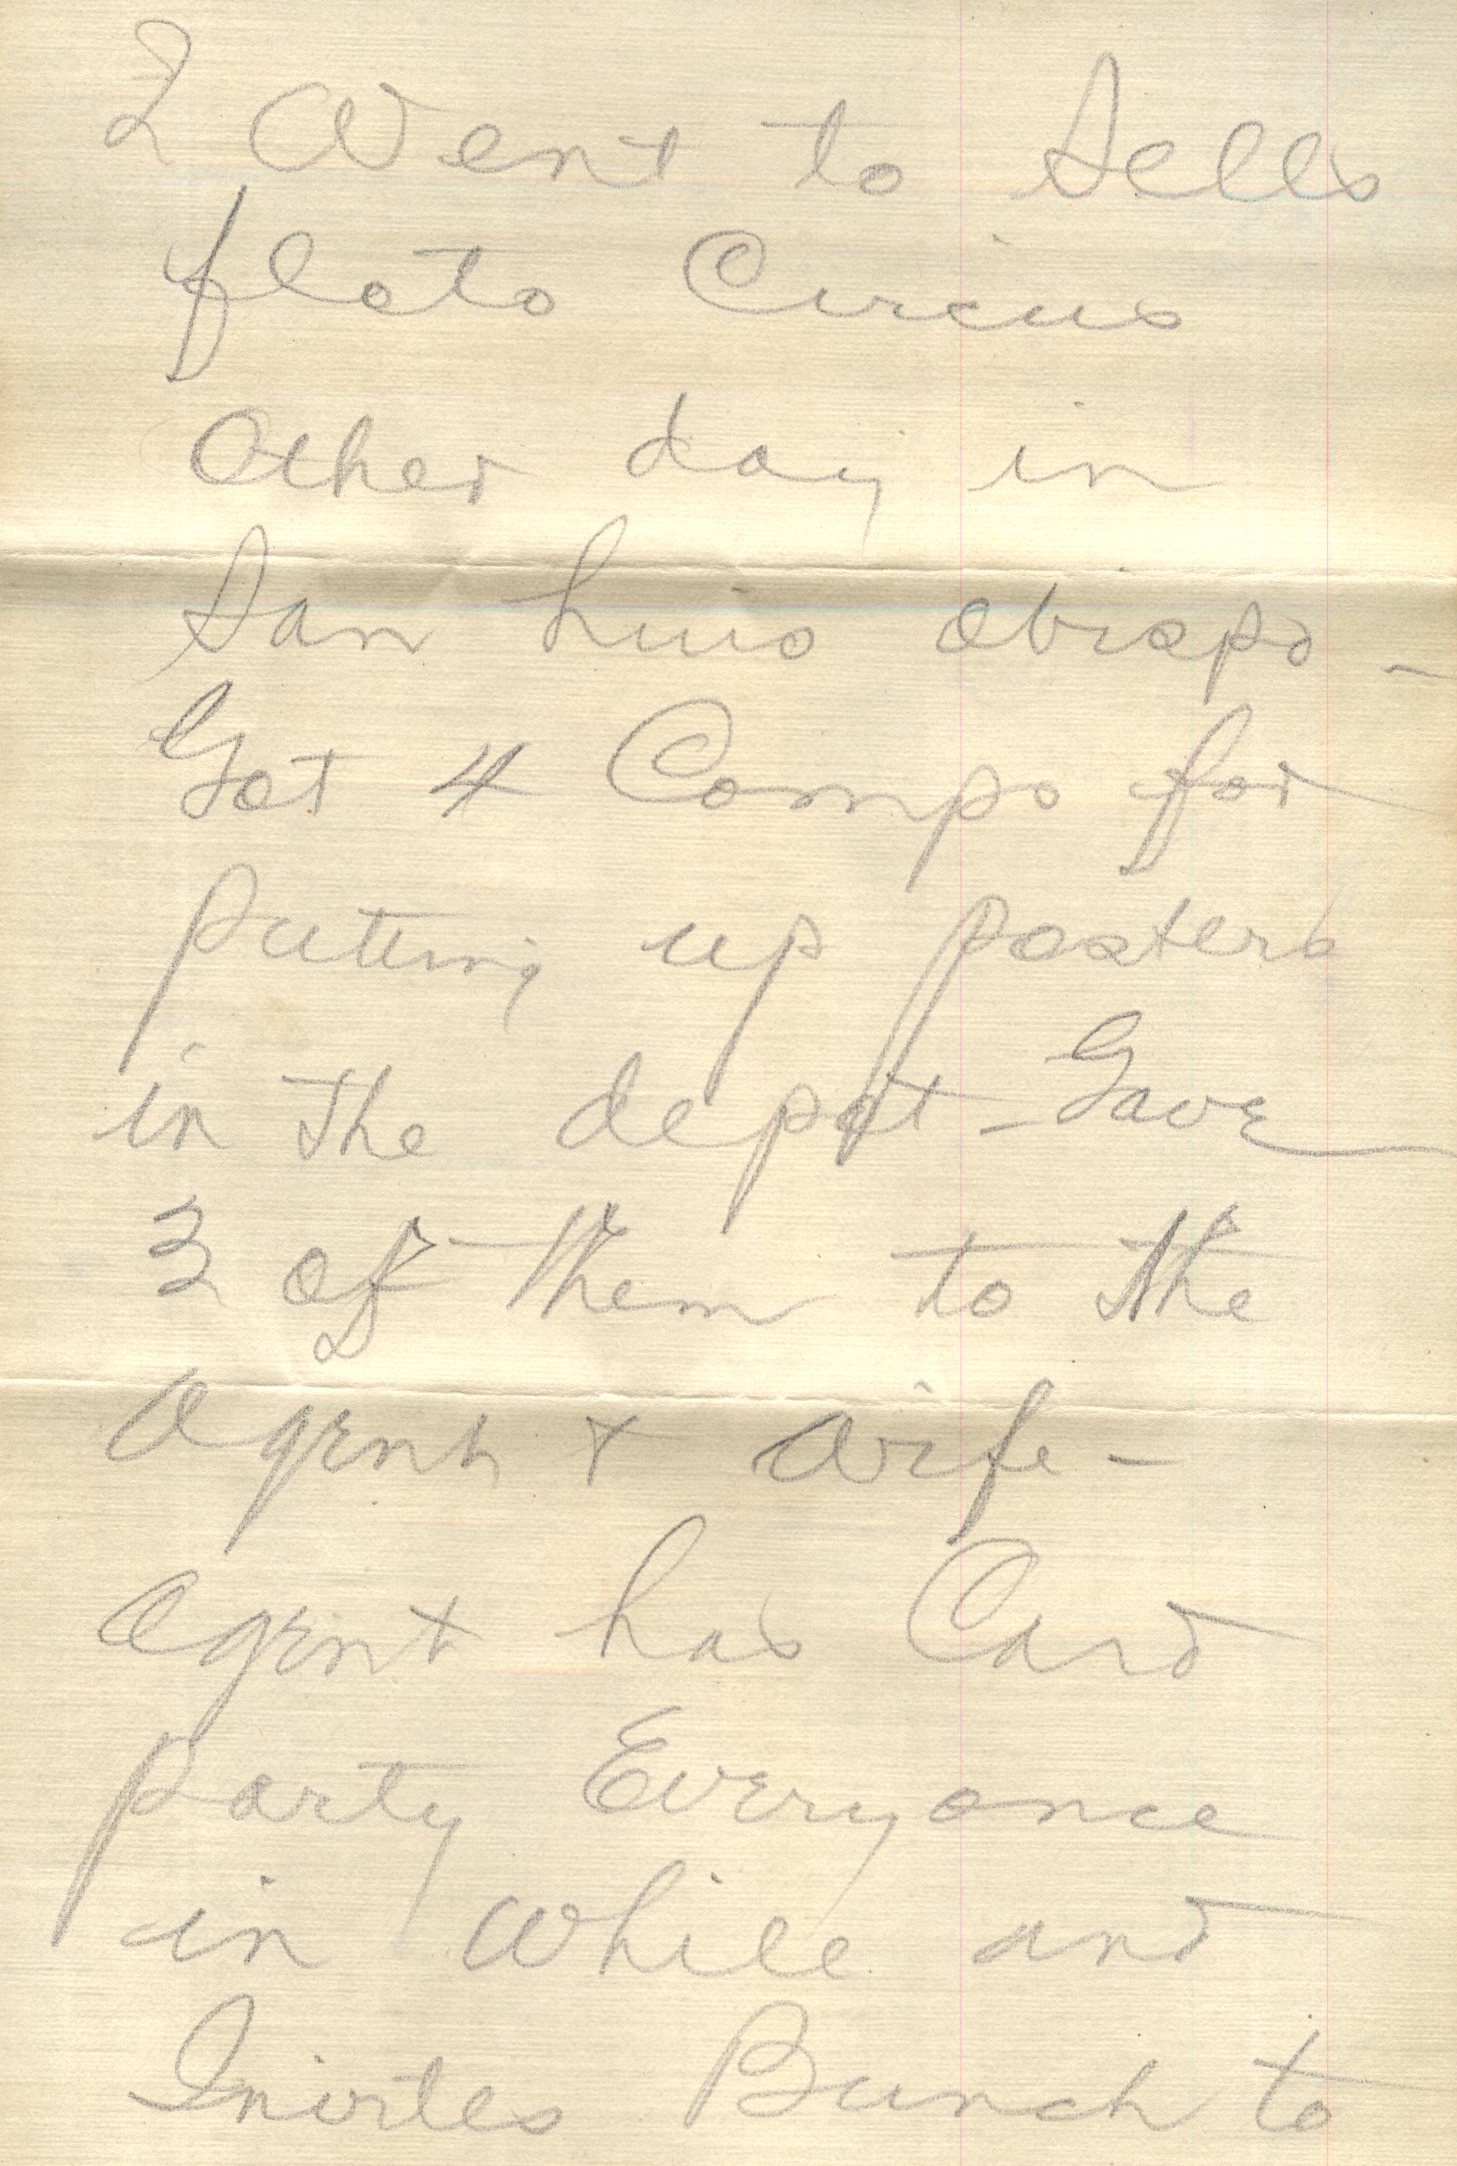 I Went to Sells
floto Circus
Other day in
San Luis Obispo -
Got 4 Comps for
Putting up posters
in The depot - Gave
3 of Them to The
Agent & wife -
Agent has Card
Party Everyonce
in While and
Invites Bunch to